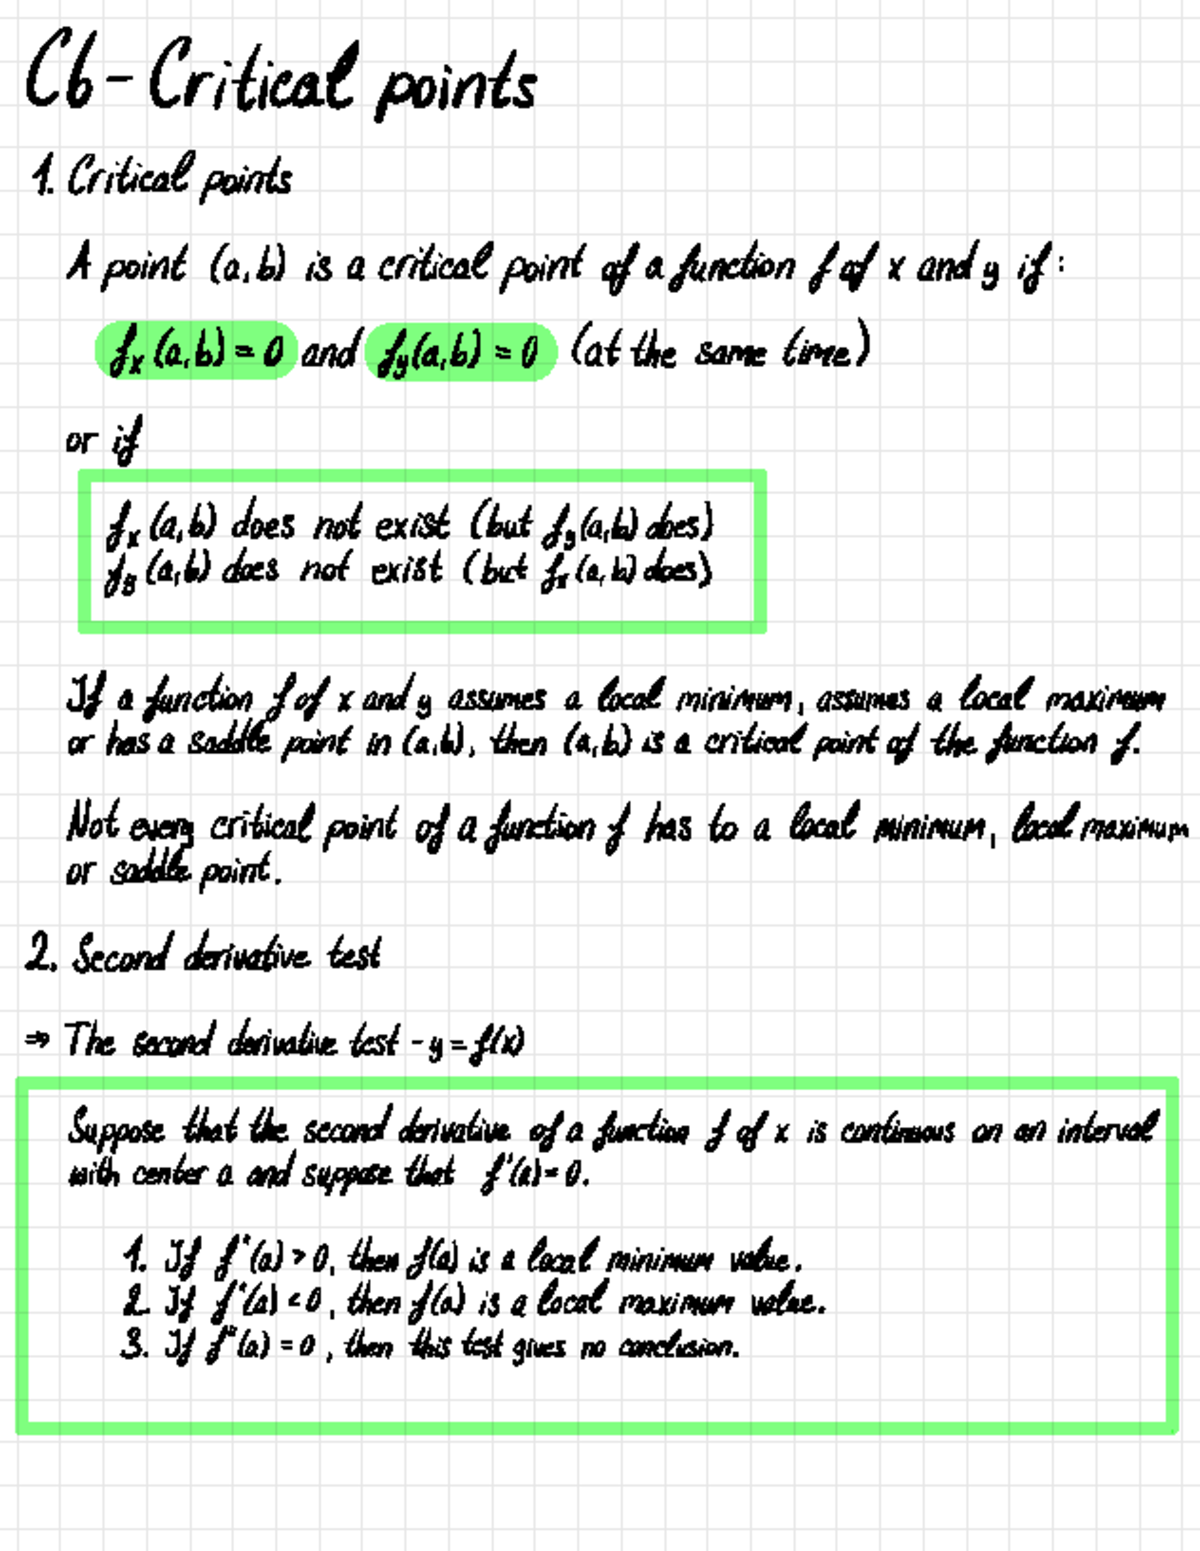 C6 - Critical points
1. Critical points
A point (a,b) is a critical point of a function f of x and y if:
fₓ(a,b) = 0 and f_y(a,b) = 0 (at the same time)
or if
fₓ(a,b) does not exist (but f_y(a,b) does)
f_y(a,b) does not exist (but fₓ(a,b) does)
If a function f of x and y assumes a local minimum, assumes a local maximum
or has a saddle point in (a,b), then (a,b) is a critical point of the function f.
Not every critical point of a function f has to a local minimum, local maximum
or saddle point.
2. Second derivative test
⇒ The second derivative test - y = f(x)
Suppose that the second derivative of a function f of x is continuous on an interval
with center a and suppose that f'(a) = 0.
1. If f"(a) > 0, then f(a) is a local minimum value.
2. If f"(a) < 0, then f(a) is a local maximum value.
3. If f"(a) = 0, then this test gives no conclusion.